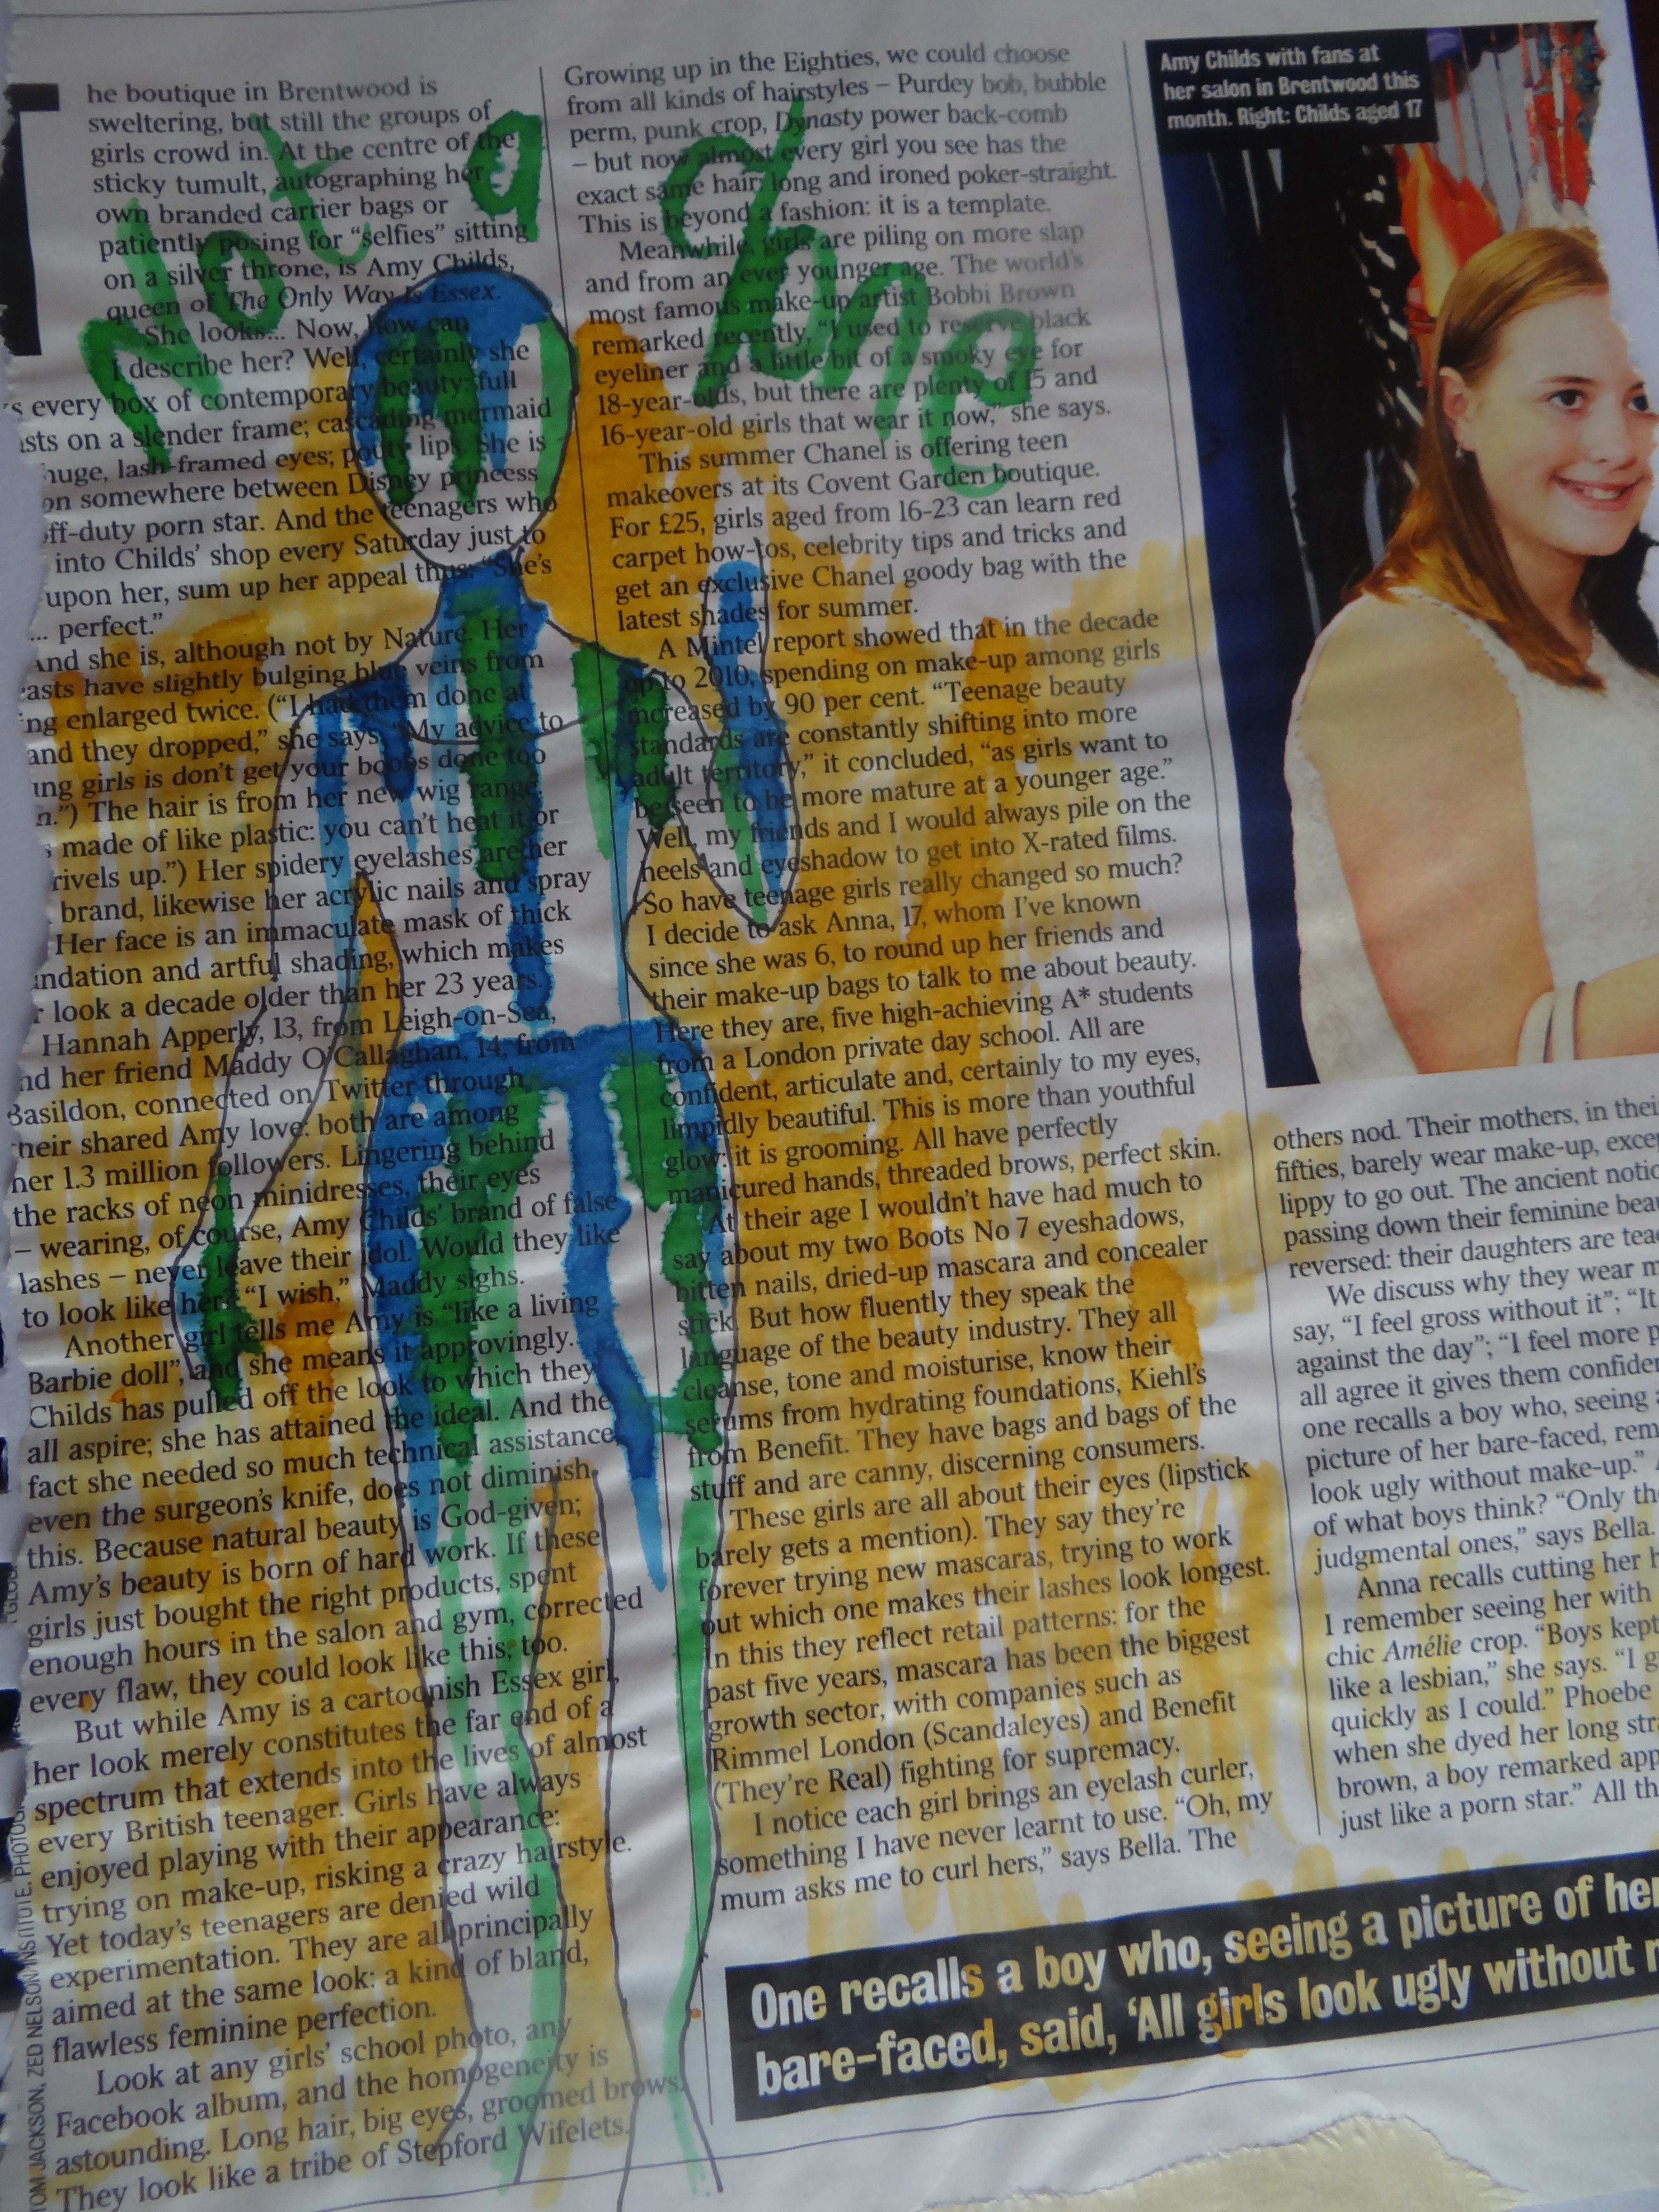 Not a bhng
he boutique in Brentwood is
sweltering, but still the groups of
girls crowd in. At the centre of the
sticky tumult, autographing her
own branded carrier bags or
patiently posing for “selfies” sitting
on a silver throne, is Amy Childs,
queen of The Only Way Is Essex.
She looks... Now, how can
I describe her? Well, certainly she
every box of contemporary beauty: full
on a slender frame; cascading mermaid
huge, lash-framed eyes; pouty lips. She is
somewhere between Disney princess
off-duty porn star. And the teenagers who
into Childs’ shop every Saturday just to
upon her, sum up her appeal thus: “She’s
... perfect.”
And she is, although not by Nature. Her
have slightly bulging blue veins from
enlarged twice. (“I had them done at
and they dropped,” she says. “My advice to
girls is don’t get your boobs done too
The hair is from her new wig range.
made of like plastic: you can’t heat it or
rivels up.”) Her spidery eyelashes are her
brand, likewise her acrylic nails and spray
Her face is an immaculate mask of thick
ndation and artful shading, which makes
look a decade older than her 23 years.
Hannah Apperly, 13, from Leigh-on-Sea,
nd her friend Maddy O’Callaghan, 14, from
Basildon, connected on Twitter through
their shared Amy love: both are among
her 1.3 million followers. Lingering behind
the racks of neon minidresses, their eyes
– wearing, of course, Amy Childs’ brand of false
lashes – never leave their idol. Would they like
to look like her? “I wish,” Maddy sighs.
Another girl tells me Amy is “like a living
Barbie doll”, and she means it approvingly.
Childs has pulled off the look to which they
all aspire; she has attained the ideal. And the
fact she needed so much technical assistance,
even the surgeon’s knife, does not diminish
this. Because natural beauty is God-given;
Amy’s beauty is born of hard work. If these
girls just bought the right products, spent
enough hours in the salon and gym, corrected
every flaw, they could look like this, too.
But while Amy is a cartoonish Essex girl,
her look merely constitutes the far end of a
spectrum that extends into the lives of almost
every British teenager. Girls have always
enjoyed playing with their appearance:
trying on make-up, risking a crazy hairstyle.
Yet today’s teenagers are denied wild
experimentation. They are all principally
aimed at the same look: a kind of bland,
flawless feminine perfection.
Look at any girls’ school photo, any
Facebook album, and the homogeneity is
astounding. Long hair, big eyes, groomed brows.
They look like a tribe of Stepford Wifelets.
TOM JACKSON, ZED NELSON/INSTITUTE,
Growing up in the Eighties, we could choose
from all kinds of hairstyles – Purdey bob, bubble
perm, punk crop, Dynasty power back-comb
– but now almost every girl you see has the
exact same hair: long and ironed poker-straight.
This is beyond a fashion: it is a template.
Meanwhile, girls are piling on more slap
and from an ever younger age. The world’s
most famous make-up artist Bobbi Brown
remarked recently, “I used to reserve black
eyeliner and a little bit of a smoky eye for
18-year-olds, but there are plenty of 15 and
16-year-old girls that wear it now,” she says.
This summer Chanel is offering teen
makeovers at its Covent Garden boutique.
For £25, girls aged from 16-23 can learn red
carpet how-tos, celebrity tips and tricks and
get an exclusive Chanel goody bag with the
latest shades for summer.
A Mintel report showed that in the decade
up to 2010, spending on make-up among girls
increased by 90 per cent. “Teenage beauty
standards are constantly shifting into more
adult territory,” it concluded, “as girls want to
be seen to be more mature at a younger age.”
Well, my friends and I would always pile on the
heels and eyeshadow to get into X-rated films.
So have teenage girls really changed so much?
I decide to ask Anna, 17, whom I’ve known
since she was 6, to round up her friends and
their make-up bags to talk to me about beauty.
Here they are, five high-achieving A* students
from a London private day school. All are
confident, articulate and, certainly to my eyes,
limpidly beautiful. This is more than youthful
glow: it is grooming. All have perfectly
manicured hands, threaded brows, perfect skin.
At their age I wouldn’t have had much to
say about my two Boots No 7 eyeshadows,
bitten nails, dried-up mascara and concealer
stick. But how fluently they speak the
language of the beauty industry. They all
cleanse, tone and moisturise, know their
serums from hydrating foundations, Kiehl’s
from Benefit. They have bags and bags of the
stuff and are canny, discerning consumers.
These girls are all about their eyes (lipstick
barely gets a mention). They say they’re
forever trying new mascaras, trying to work
out which one makes their lashes look longest.
In this they reflect retail patterns: for the
past five years, mascara has been the biggest
growth sector, with companies such as
Rimmel London (Scandaleyes) and Benefit
(They’re Real) fighting for supremacy.
I notice each girl brings an eyelash curler,
something I have never learnt to use. “Oh, my
mum asks me to curl hers,” says Bella. The
Amy Childs with fans at
her salon in Brentwood this
month. Right: Childs aged 17
others nod. Their mothers, in thei
fifties, barely wear make-up, exce
lippy to go out. The ancient notio
passing down their feminine beau
reversed: their daughters are tea
We discuss why they wear m
say, “I feel gross without it”; “It
against the day”; “I feel more p
all agree it gives them confiden
one recalls a boy who, seeing a
picture of her bare-faced, rem
look ugly without make-up.”
of what boys think? “Only th
judgmental ones,” says Bella.
Anna recalls cutting her h
I remember seeing her with
chic Amélie crop. “Boys kept
like a lesbian,” she says. “I g
quickly as I could.” Phoebe
when she dyed her long stra
brown, a boy remarked app
just like a porn star.” All th
One recalls a boy who, seeing a picture of her
bare-faced, said, ‘All girls look ugly without